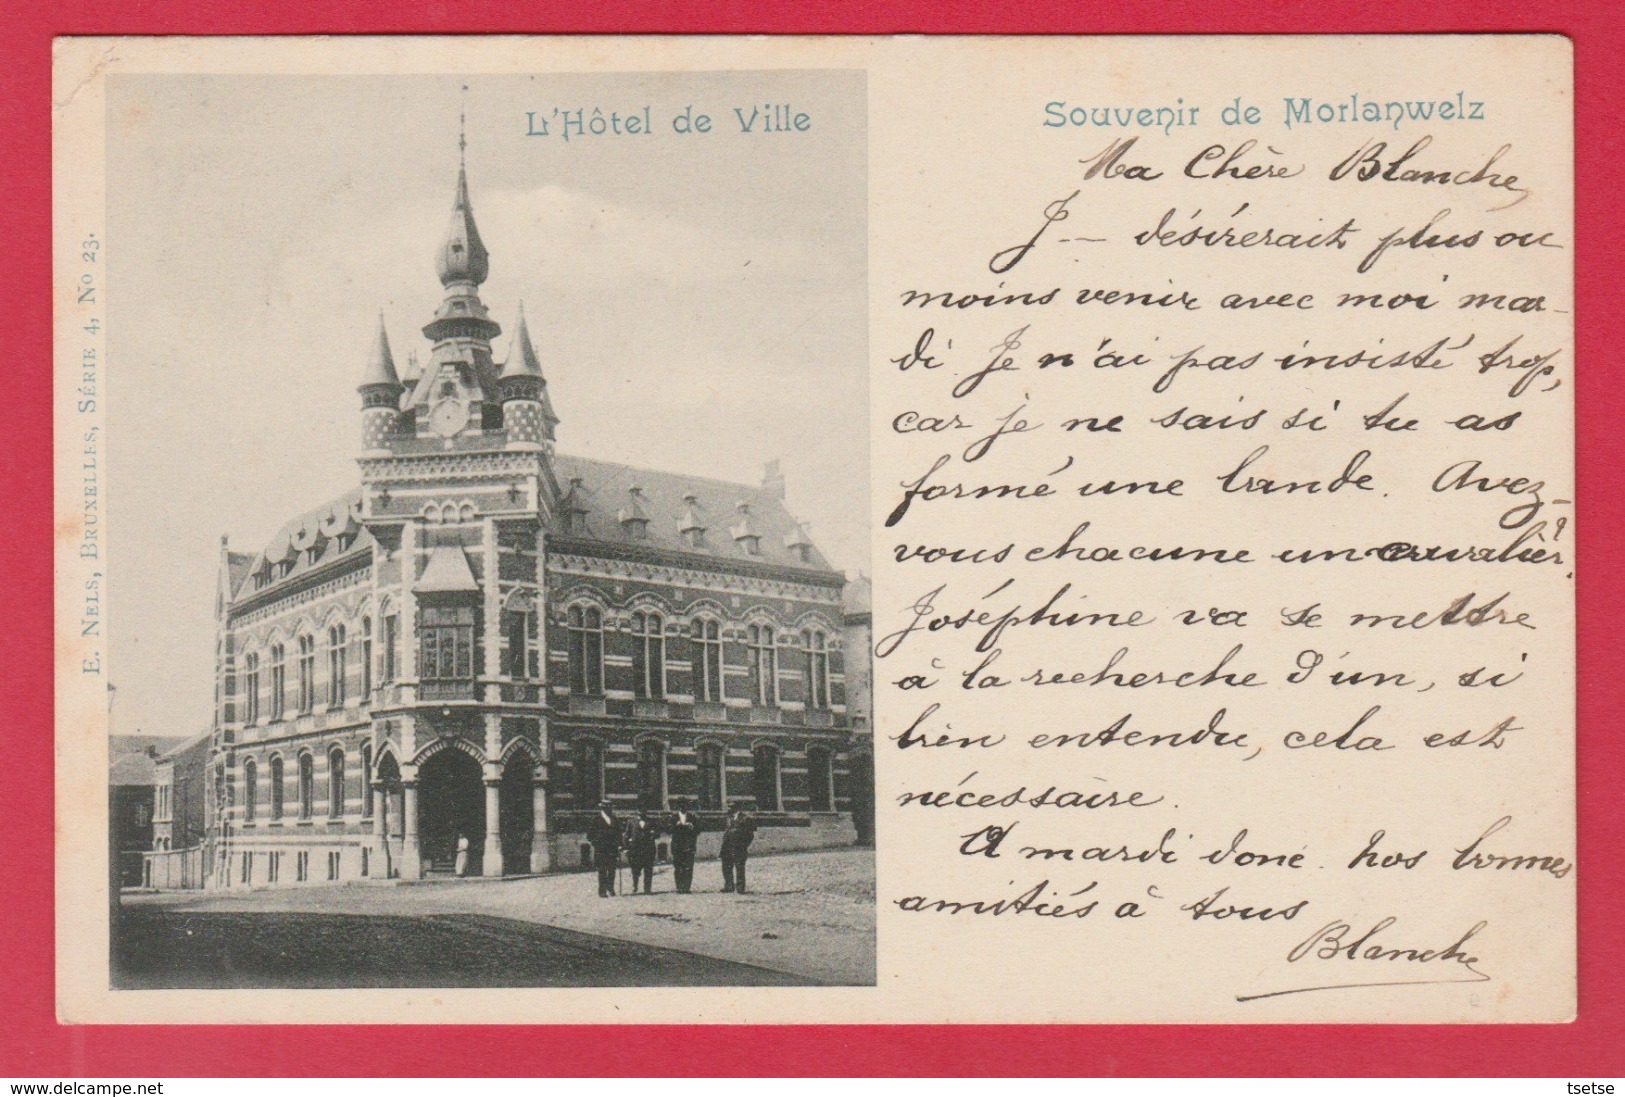 L'Hôtel de Ville
Souvenir de Morlanwelz
E. NELS, BRUXELLES, SÉRIE 4, No 23.
Ma Chère Blanche,
J — désirerait plus ou
moins venir avec moi mar-
di. Je n'ai pas insisté trop,
car je ne sais si tu as
formé une bande. Avez-
vous chacune un cavalier?
Joséphine va se mettre
à la recherche d'un, si
bien entendu, cela est
nécessaire.
A mardi donc. Nos bonnes
amitiés à tous
Blanche
www.delcampe.net
tsetse